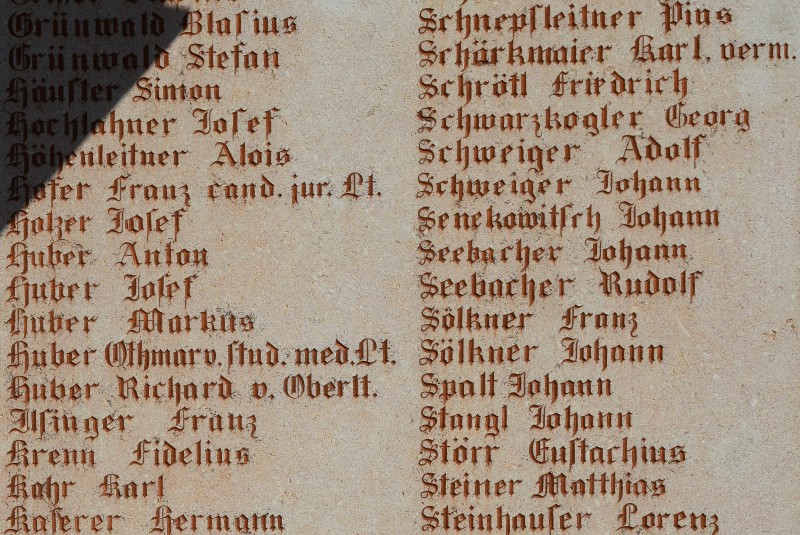 Grünwald Blasius
Grünwald Stefan
Häusler Simon
Hochlahner Josef
Höhenleitner Alois
Hofer Franz cand. jur. Lt.
Holzer Josef
Huber Anton
Huber Josef
Huber Markus
Huber Othmar v. stud. med. Lt.
Huber Richard v. Oberlt.
Ilsinger Franz
Krenn Fidelius
Kahr Karl
Kaserer Hermann
Schnepfleitner Pius
Schärkmaier Karl, verm.
Schrötl Friedrich
Schwarzkogler Georg
Schweiger Adolf
Schweiger Johann
Senekowitsch Johann
Seebacher Johann
Seebacher Rudolf
Sölkner Franz
Sölkner Johann
Spalt Johann
Stangl Johann
Störr Eustachius
Steiner Matthias
Steinhauser Lorenz